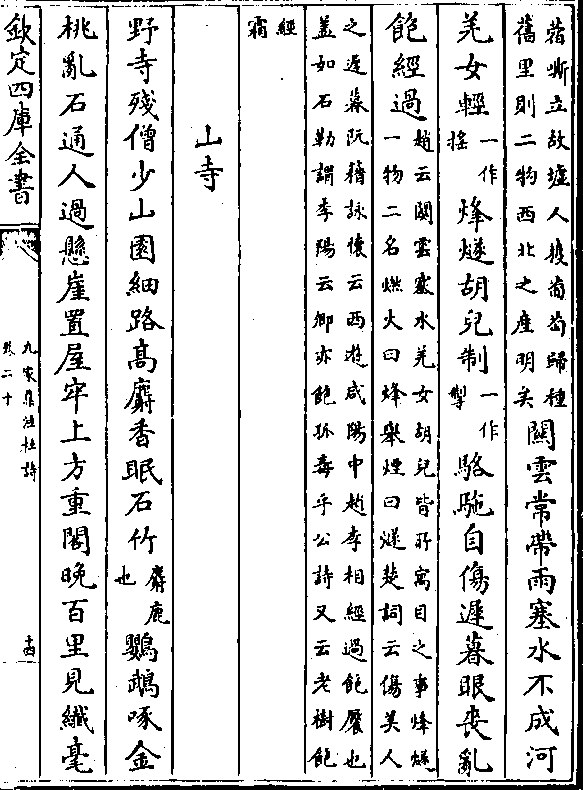 蓿嘶立故墟人獲葡萄歸種
舊里則二物西北之產明矣
關雲常帶雨塞水不成河
羌女輕一作搖烽燧胡兒制一作掣駱駝自傷遲暮眼喪亂
飽經過
趙云關雲塞水羌女胡兒皆所寓目之事烽燧
一物二名燃火曰烽舉煙曰燧楚詞云傷美人
之遲暮阮籍詠懷云西遊咸陽中趙李相經過飽饜也
蓋如石勒謂李陽云卿亦飽孤毒手公詩又云老樹飽
經
霜
山寺
野寺殘僧少山園細路高麝香眠石竹麝鹿也鸚鵡啄金
桃亂石通人過懸崖置屋牢上方重閣晚百里見纖毫
欽定四庫全書
九家集注杜詩
卷二十
十四